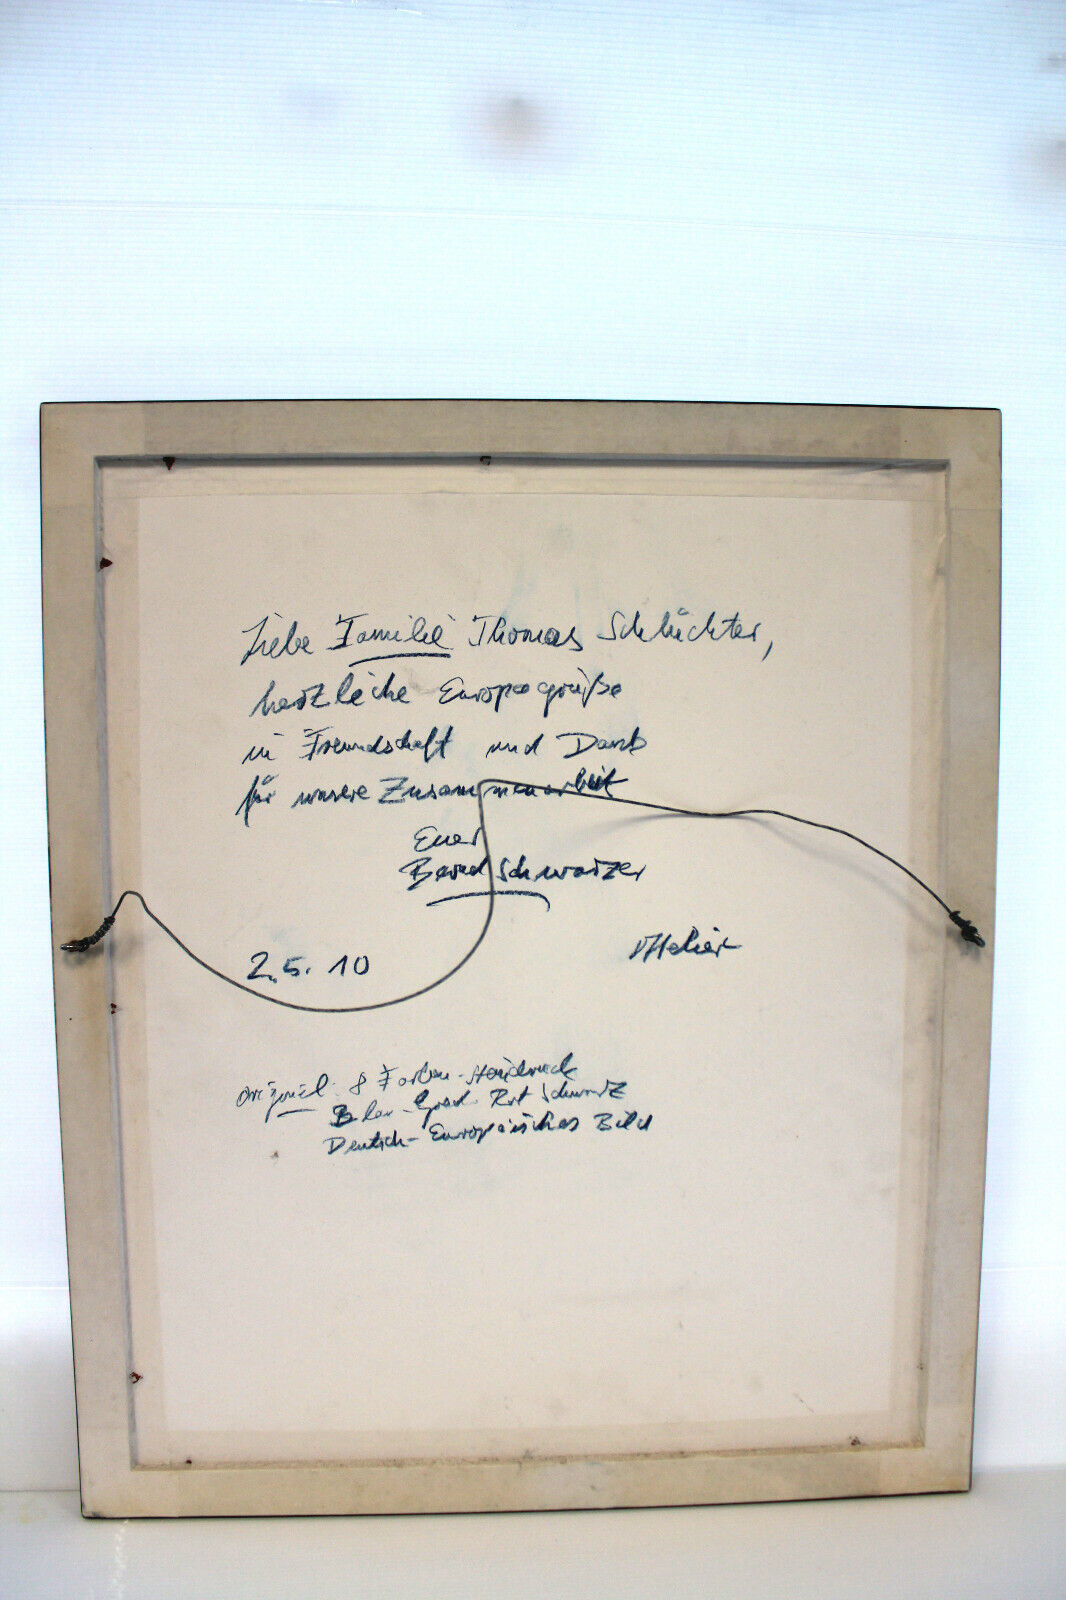 Liebe Familie Thomas Schlüchter,
herzliche Europagrüße
in Freundschaft und Dank
für unsere Zusammenarbeit
Euer
Bernd Schwarzer
2.5.10
Atelier
Original 8 Farben-Handdruck
Blau-Gold-Rot Schwarz
Deutsch-Europäisches Bild